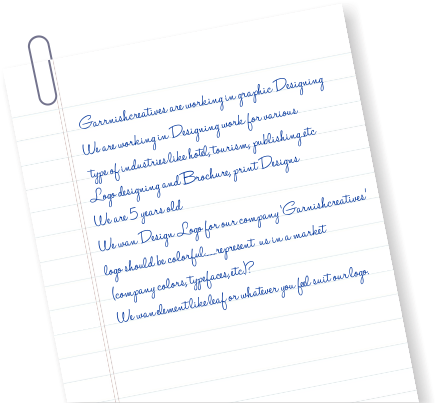 Garrnishcreatives are working in graphic Designing
We are working in Designing work for various
type of industries like hotel, tourism, publishing,etc
Logo designing and Brochure, print Designs
We are 5 years old
We wan Design Logo for our company 'Garnishcreatives'
logo should be colorful__represent us in a market
(company colors, typefaces, etc.)?
We wan element like leaf or whatever you feel suit our logo.